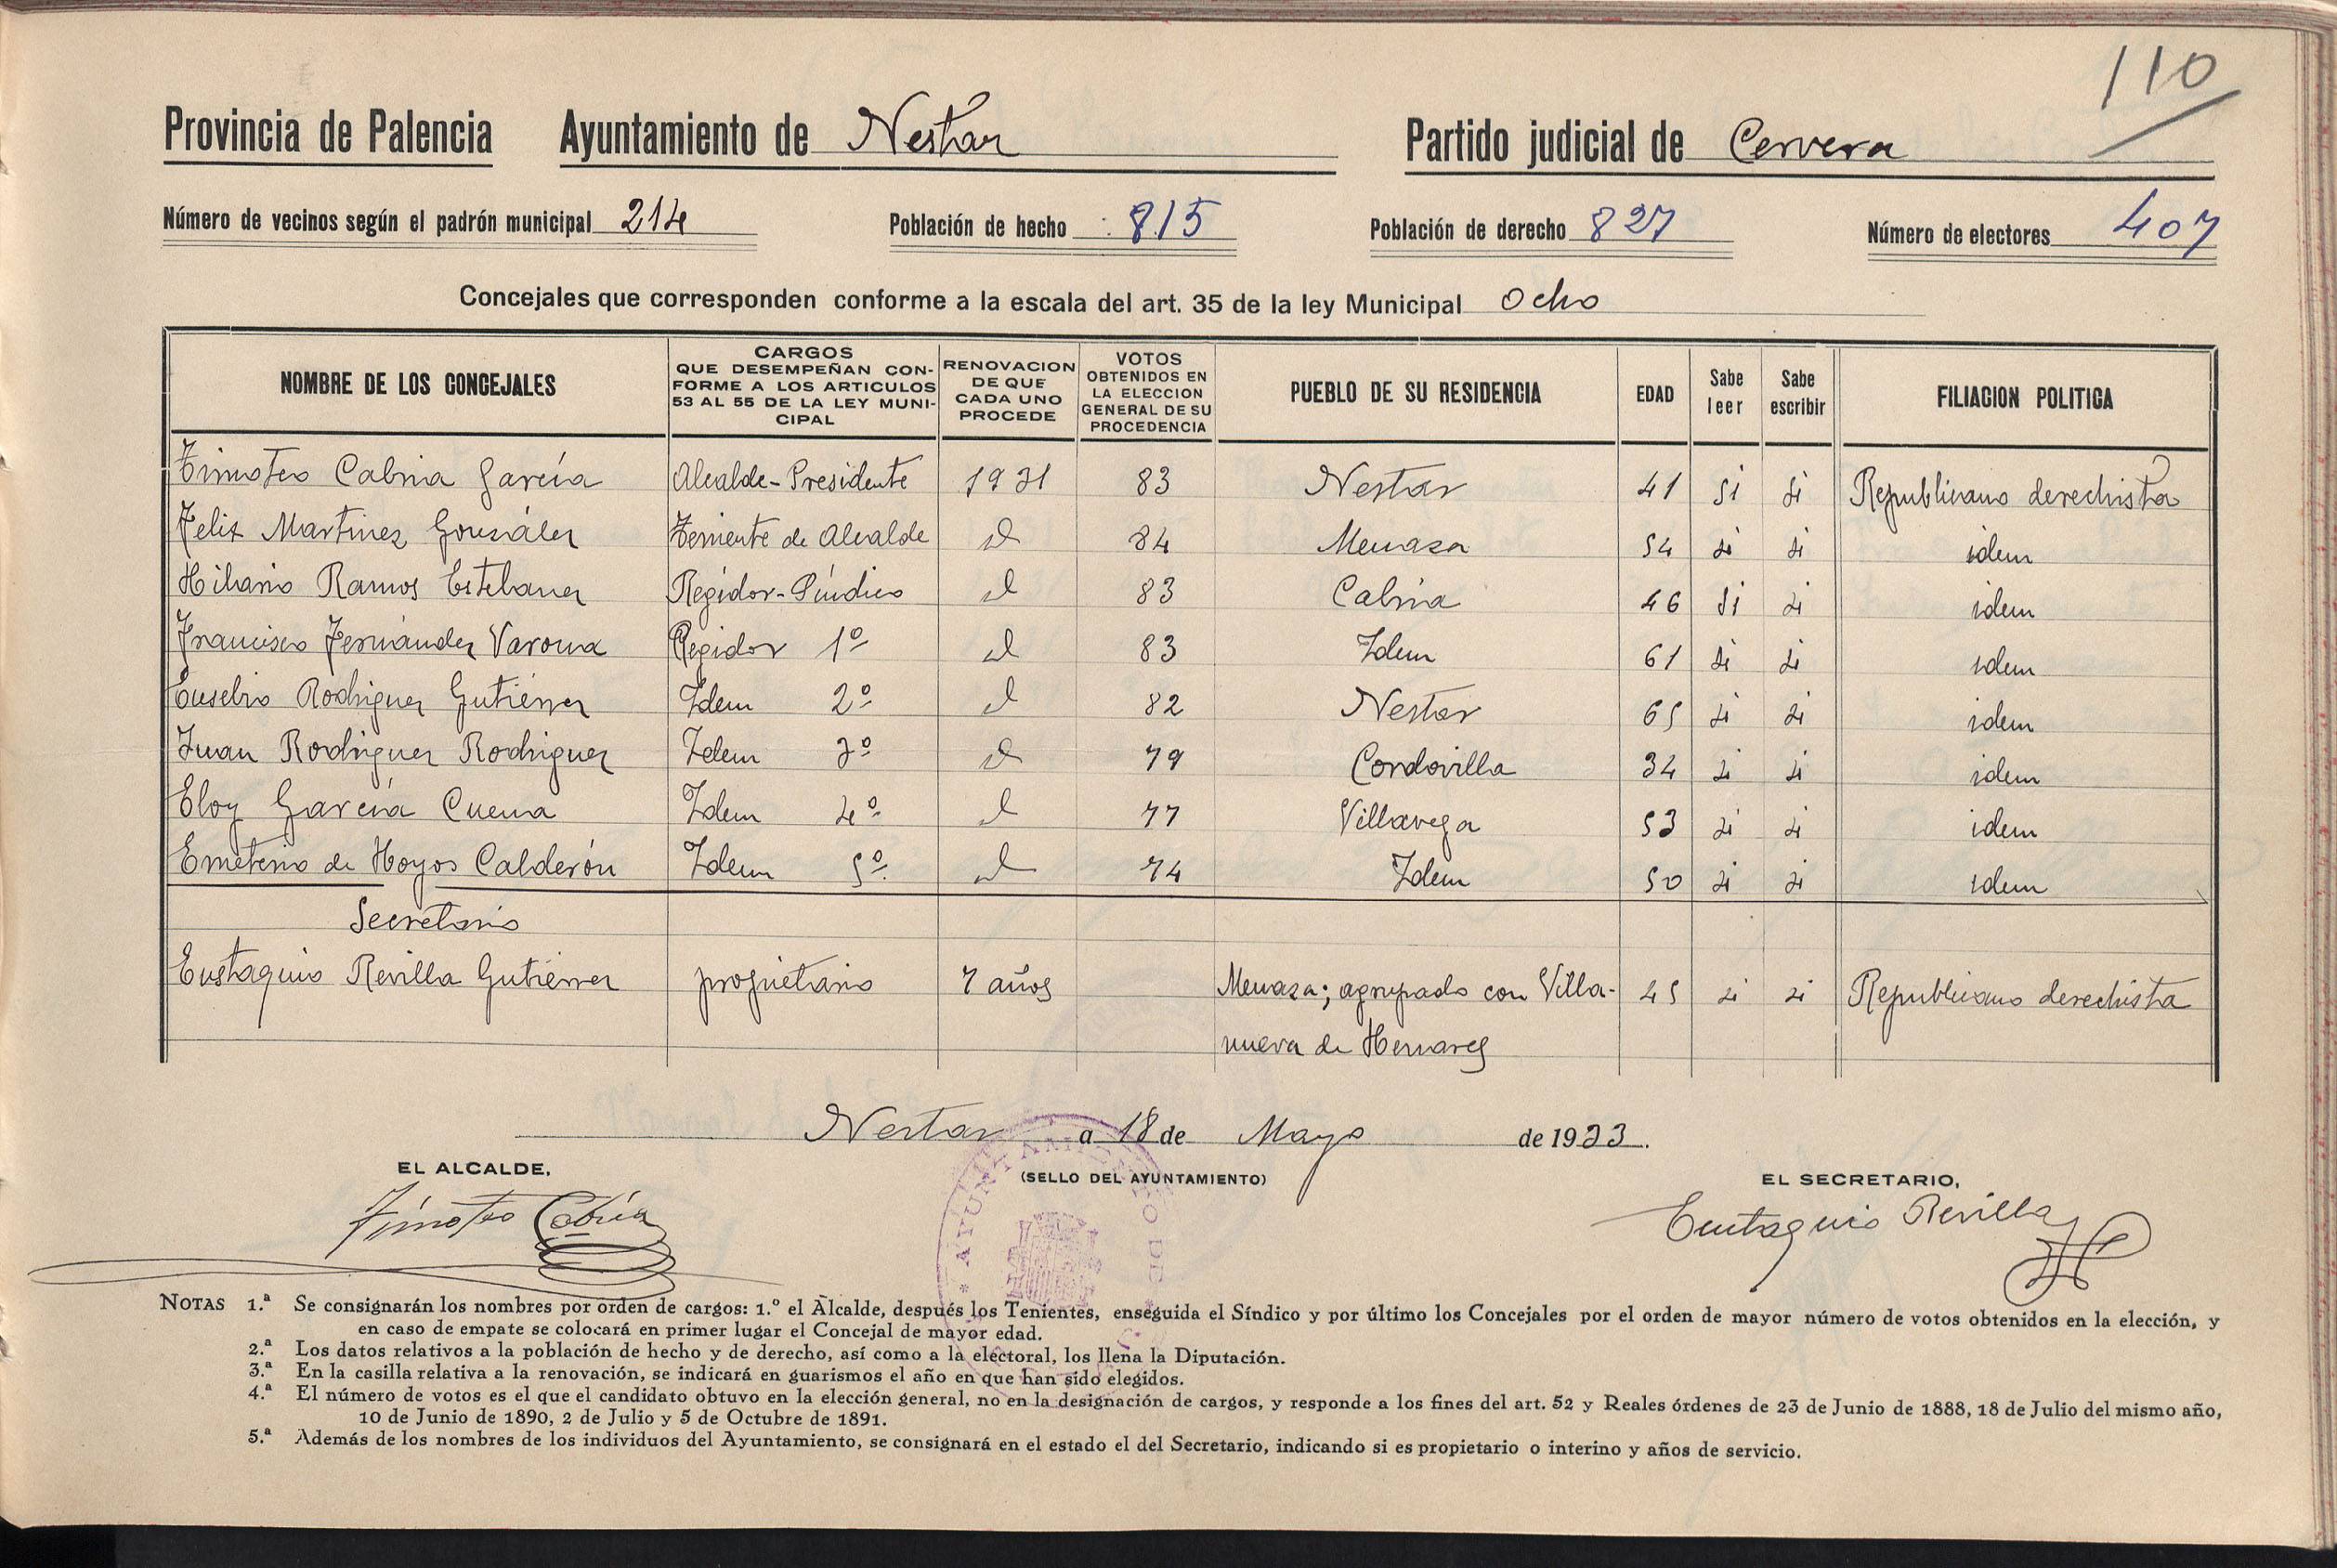 110
Provincia de Palencia Ayuntamiento de Nestar Partido judicial de Cervera
Número de vecinos según el padrón municipal 214 Población de hecho 815 Población de derecho 827 Número de electores 407
Concejales que corresponden conforme a la escala del art. 35 de la ley Municipal Ocho
NOMBRE DE LOS CONCEJALES CARGOS QUE DESEMPEÑAN CONFORME A LOS ARTICULOS 53 AL 55 DE LA LEY MUNICIPAL RENOVACION DE QUE CADA UNO PROCEDE VOTOS OBTENIDOS EN LA ELECCION GENERAL DE SU PROCEDENCIA PUEBLO DE SU RESIDENCIA EDAD Sabe leer Sabe escribir FILIACION POLITICA
Timoteo Cabria García Alcalde-Presidente 1931 83 Nestar 41 si si Republicano derechista
Felix Martinez González Teniente de Alcalde id 84 Menaza 54 si si idem
Hilario Ramos Estebanez Regidor-Síndico id 83 Cabria 46 si si idem
Francisco Fernández Varona Regidor 1º id 83 Idem 61 si si idem
Eusebio Rodriguez Gutiérrez Idem 2º id 82 Nestar 65 si si idem
Juan Rodriguez Rodriguez Idem 3º id 79 Cordovilla 34 si si idem
Eloy García Cuena Idem 4º id 77 Villavega 53 si si idem
Emeterio de Hoyos Calderón Idem 5º id 74 Idem 50 si si idem
Secretario
Eustaquio Revilla Gutiérrez propietario 7 años Menaza; agrupado con Villa- 45 si si Republicano derechista
nueva de Henares
Nestar a 18 de Mayo de 1933.
EL ALCALDE, (SELLO DEL AYUNTAMIENTO) EL SECRETARIO,
Timoteo Cabria Eustaquio Revilla
AYUNTAMIENTO DE
NOTAS 1.ª Se consignarán los nombres por orden de cargos: 1.º el Alcalde, después los Tenientes, enseguida el Síndico y por último los Concejales por el orden de mayor número de votos obtenidos en la elección, y
en caso de empate se colocará en primer lugar el Concejal de mayor edad.
2.ª Los datos relativos a la población de hecho y de derecho, así como a la electoral, los llena la Diputación.
3.ª En la casilla relativa a la renovación, se indicará en guarismos el año en que han sido elegidos.
4.ª El número de votos es el que el candidato obtuvo en la elección general, no en la designación de cargos, y responde a los fines del art. 52 y Reales órdenes de 23 de Junio de 1888, 18 de Julio del mismo año,
10 de Junio de 1890, 2 de Julio y 5 de Octubre de 1891.
5.ª Además de los nombres de los individuos del Ayuntamiento, se consignará en el estado el del Secretario, indicando si es propietario o interino y años de servicio.